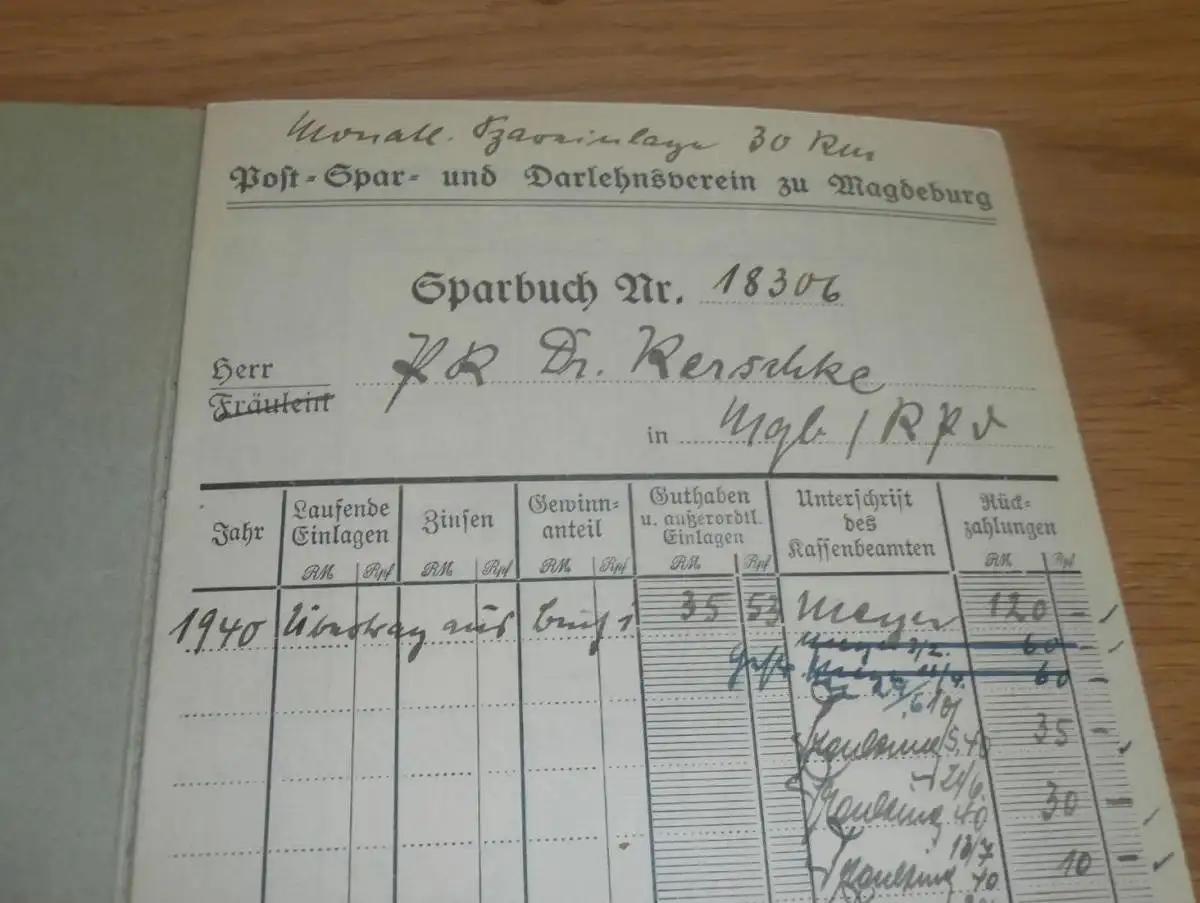 Monatl. Spareinlage 30 Rm
Post-Spar- und Darlehnsverein zu Magdeburg
Sparbuch Nr. 18306
Herr
Fräulein
PR Dr. Kerschke
in Mgb / RPD
Jahr Laufende Einlagen Zinsen Gewinn-anteil Guthaben u. außerordtl. Einlagen Unterschrift des Kassenbeamten Rück-zahlungen
RM Rpf RM Rpf RM Rpf RM Rpf RM Rpf
1940 Übertrag aus 35 53 Meyer 120 -
2/2. 60 -
11/4. 60 -
5.40 35 -
21/6. 40 30 -
18/7 40 10 -